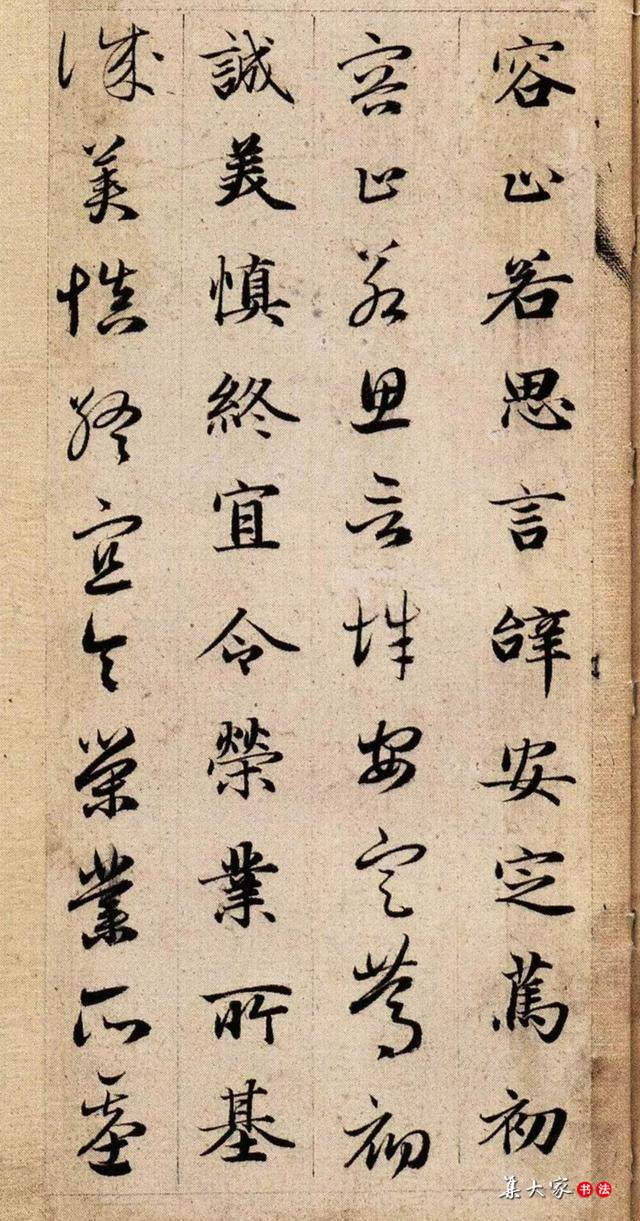 容止若思言辝安定篤初
容止若思言辝安定篤初
誠美慎終宜令榮業所基
誠美慎終宜令榮業所基
集大家书法